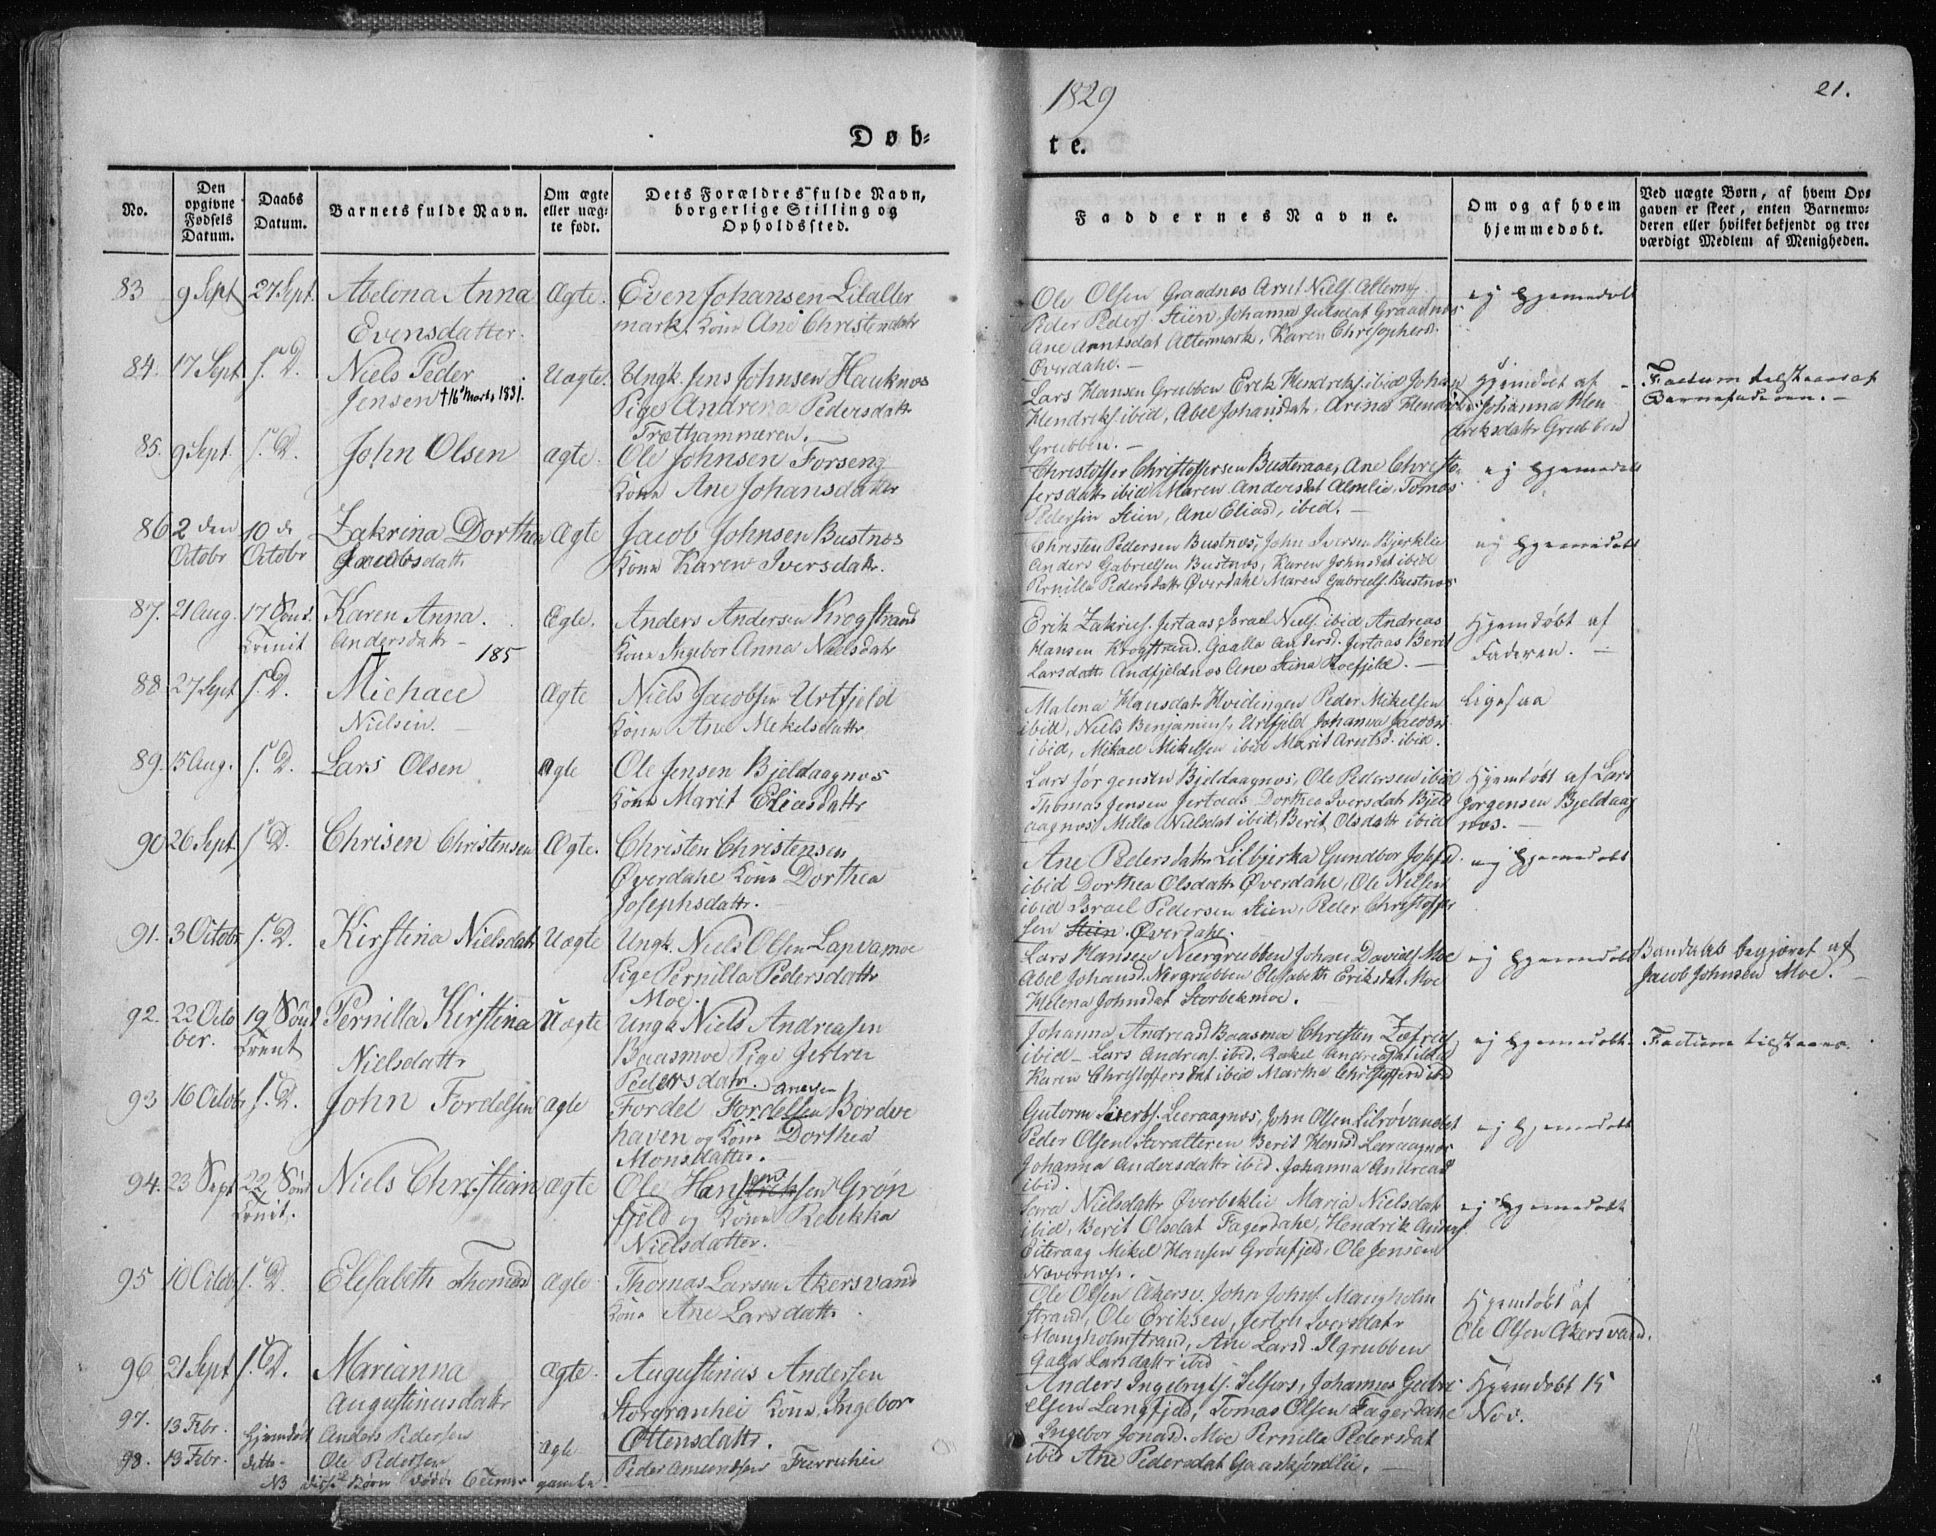 1829
21.
Døb=
te.
No.
Den opgivne Fødsels Datum.
Daabs Datum.
Barnets fulde Navn.
Om ægte eller uægte født.
Dets Forældres fulde Navn, borgerlige Stilling og Opholdssted.
Faddernes Navne.
Om og af hvem hjemmedøbt.
Ved uægte Børn, af hvem Opgaven er skeet, enten Barnemoderen eller hvilket bekjendt og troværdigt Medlem af Menigheden.
83 9 Sept 27 Sept. Abelona Anna Ægte. Even Johansen Lilalter
Evensdatter. mark, Kone Ane Christensdatr
Ole Olsen Graadnes Arnt Niels. Alterm.
Peder Peders. Stien, Johanna Julsdat Graadnos
Ane Arntsdat Altermark, Karen Christophers.
Överdahe.
ej hjemedöbt
84. 17 Sept. s. D. Niels Peder Uægte. Ungk. Jens Johnsen Hauknos
Jensen †16 Marts 1831. Pige Andrena Pedersdatr
Træthammeren.
Lars Hansen Grubben Erik Hendriks. ibid Johan
Hendriks. ibid, Abel Johansdat, Arina Hendriks
Grubben.
Hjemdöbt af
Johanna Hen
driksdatr Grubben
Factum tilstaaes af
Barnefaderen.
85. 9 Sept. s. D. John Olsen ægte. Ole Johnsen Forseng
Kone Ane Johansdatter
Christoffer Christoffersen Busteraae, Ane Christo
fersdatr ibid Maren Andersdat Almlie, Tomas
Pedersen Stien, Ane Eliasd. ibid.
ej hjemedöbt
86 2 den 10 de Zakrina Dorthea Ægte Jacob Johnsen Bustnos
Octobr Octobr Jacobsdatr Kone Karen Iversdatr.
Christen Pedersen Bustnos, John Iversen Bjerklie
Anders Gabrielsen Bustnos, Karen Johnsdat ibid
Pernilla Pedersdatr Överdahl Maren Gabriels. Bustnos
ej hjemedöbt
87. 21 Aug. 17 Sönd. Karen Anna. Ægte. Anders Andersen Krogstrand
Trinit Andersdatr Kone Ingebor Anna Nielsdatr
185
Erik Zakries. Jertaas, Israel Niels. ibid Andreas
Hansen Krogstrand. Gaalla Andersd. Jertaas Berit
Larsdatr Andfjeldnos Ane Stina Roefjeld.
Hjemdøbt af
Faderen.
88 27 Sept s. D. Michael Ægte Niels Jacobsen Urtfjeld
Nielsen. Kone Ane Mekelsdatr,
Malena Hansdatr Hvidingen Peder Mikelsen
ibid, Niels Benjamins. Urtfjeld Johanna Jacobs.
ibid, Mikael Mikelsen ibid Marit Arntsd. ibid.
Ligesaa
89. 15 Aug. s. D. Lars Olsen Ægte Ole Jensen Bjeldaagnos
Kone Marit Eliasdatr
Lars Jörgensen Bjeldaagnos, Ole Pedersen ibid
Thomas Jensen Jertaas Dorthea Iversdat Bjeld
aagnos, Milla Nielsdat ibid, Berit Olsdatr ibid
Hjemdöbt af Lars
Jörgensen Bjeldaag
nos.
90 26 Sept. s. D. Chrisen Christensen Ægte. Christen Christensen
Överdahe Kone Dorthea
Josephsdatr.
Ane Pedersdatr Lilbjerka Gundbor Josefsd.
ibid Dorthea Olsdatr Överdahe, Ole Nilsen
ibid Israel Pedersen Stien, Peder Christoffer
sen Stien Överdahl.
ej hjemedöbt
91. 3 Octobr s. D. Kirstina Nielsdatr Uægte Ungk. Niels Olsen Lapvamoe
Pige Pernilla Pedersdatr
Moe.
Lars Hansen Niergrubben Johan Davids. Moe
Abel Johansd. Nergrubben Elisabeth Eriksdat. Moe
Helena Johnsdat Storbekmoe.
ej hjemmedöbt
Barnedaab begjæret af
Jacob Johnsen Moe.
92. 22 Octo 19 Sönd Pernilla Kirstina Uægte Ungk. Niels Andreasen
ber. Trenit Nielsdatr Baasmoe Pige Jertru
Pedersdatr.
Johanna Andreasd Baasmo Christen Zefrid
ibid Lars Andreas. ibid. Rakel Andreasdat ibid
Karen Christoffersdat ibid Martha Christofferd ibid
ej hjemmedöbt.
Factum tilstaaes.
93 16 Octobr s. D. John Fordelsen Ægte Fordel Fordelsen Bordve
haven og Kone Dorthea
Monsdatter.
Gutorm Siverts. Leeraagnos, John Olsen Lilrövandet
Peder Olsen Storalteren Berit Hansd Leeraagnos
Johanna Andersdatr ibid. Johanna Andreasd
ibid.
ej hjemedöbt
94. 23 Sept 22 Sönd Niels Christian ægte Ole Hansen Grön
Trinit. fjeld og Kone Rebekka
Nielsdatter.
Sara Nielsdatr Överbeklie Maria Nielsdat
ibid, Berit Olsdat Fagerdahl, Hendrik Anders
Eiteraag Mikel Hansen Grönfjed, Ole Jensen
Nævernos.
ej hjemedöbt
95 10 Octobr s. D. Elisabeth Thomasd Ægte Thomas Larsen Akersvand
Kone Ane Larsdatr.
Ole Olsen Akersv. John Johns. Mangholm
strand, Ole Eriksen, Jertrh Iversdatr
Mangholmstrand, Ane Larsd Ilgrubben
Galla Larsdatr ibid
Hjemdöbt af
Ole Olsen Akersvand.
96 21 Sept s. D. Marianna Ægte. Augustinus Andersen
Augustinusdatr Storgranhei Kone, Ingebor
Ottensdatr.
Anders Ingebrigts. Selfors, Johannes Gabri
elsen Langfjeld, Tomas Olsen Fagerdahe
Ingebor Jonasd. Moe Pernilla Pedersdat
ibid Ane Pedersdat Gaaskjonlie.
Hjemdöbt 15
Nov.
97. 13 Febr. Hjemdöbt Anders Pedersen
98. 13 Febr. ditto Ole Pedersen Ægte Peder Amundsen
NB disse Börn döde 6 timer gamle.